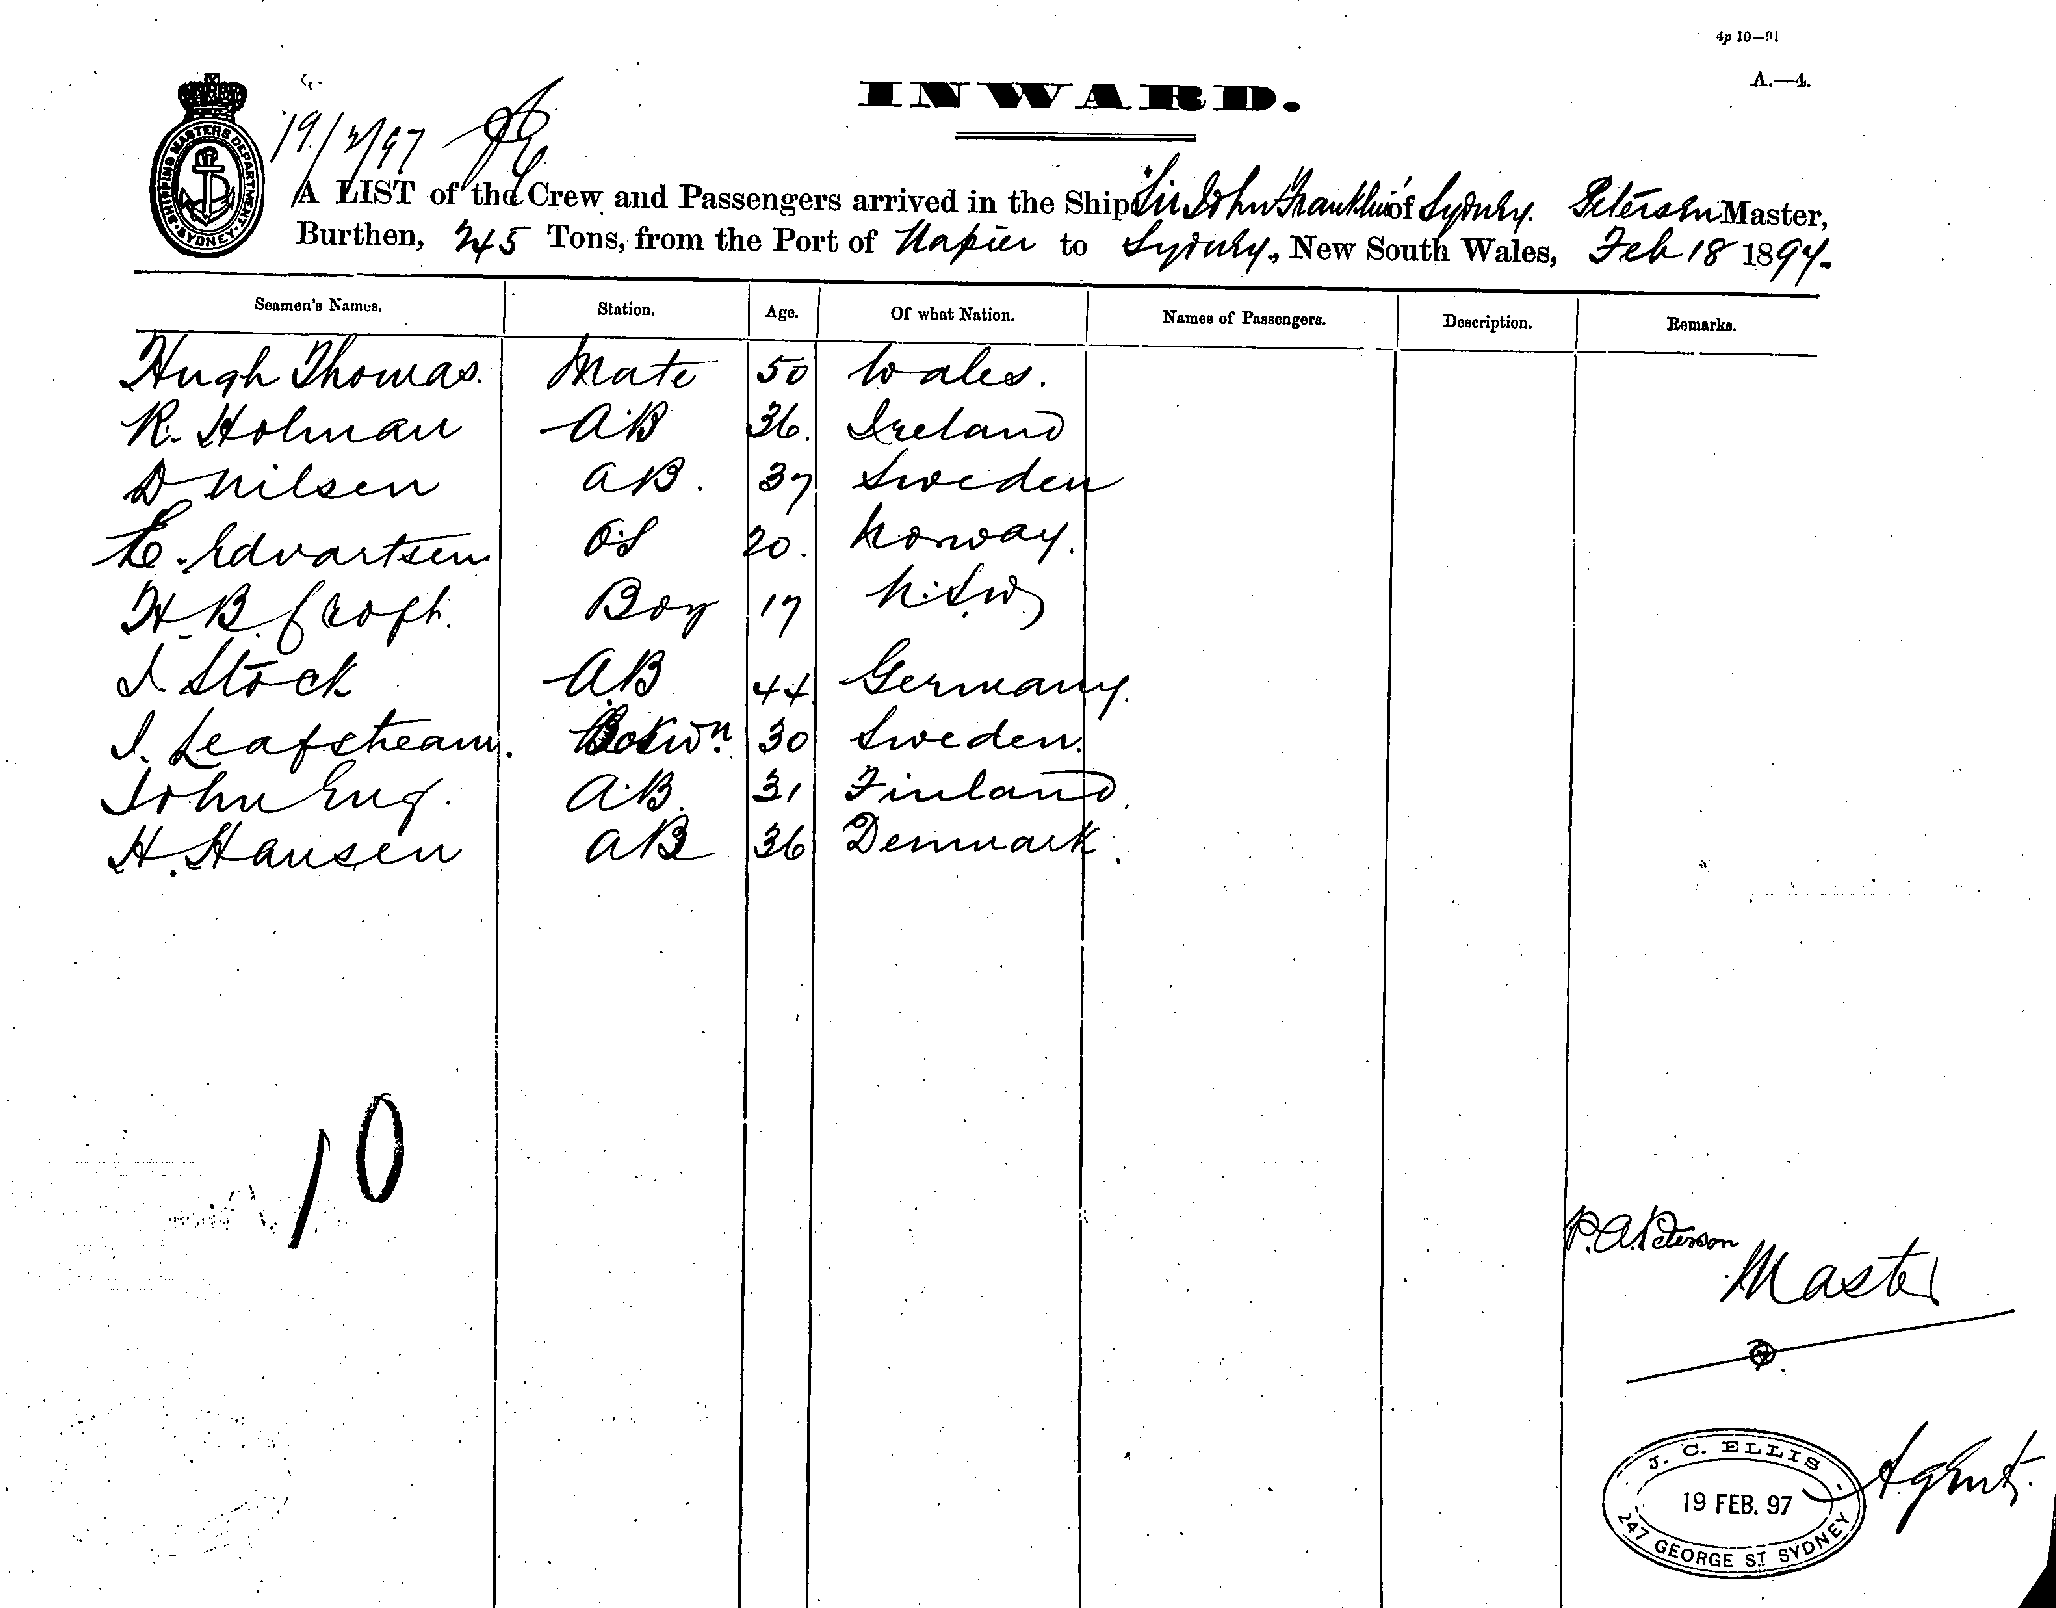 4p 10—91
A.—4.
INWARD.
SHIPPING MASTERS DEPARTMENT SYDNEY
19/2/97
A LIST of the Crew and Passengers arrived in the Ship "Sir John Franklin" of Sydney. Petersen Master,
Burthen, 245 Tons, from the Port of Napier to Sydney, New South Wales, Feb 18 1897.
Seamen's Names. Station. Age. Of what Nation. Names of Passengers. Description. Remarks.
Hugh Thomas. Mate 50 Wales.
R. Holman AB 36. Ireland
D Nilsen AB. 37 Sweden
E. Edvartsen OS 20. Norway.
H. B. Croft. Boy 17 N.S.W
J. Stock AB 44 Germany.
J. Leafstream. Botswn. 30 Sweden.
John Eng. AB. 31 Finland.
H. Hansen AB 36 Denmark.
10
P. A. Peterson
Master
J. C. ELLIS
19 FEB. 97
247 GEORGE ST SYDNEY
Agent.